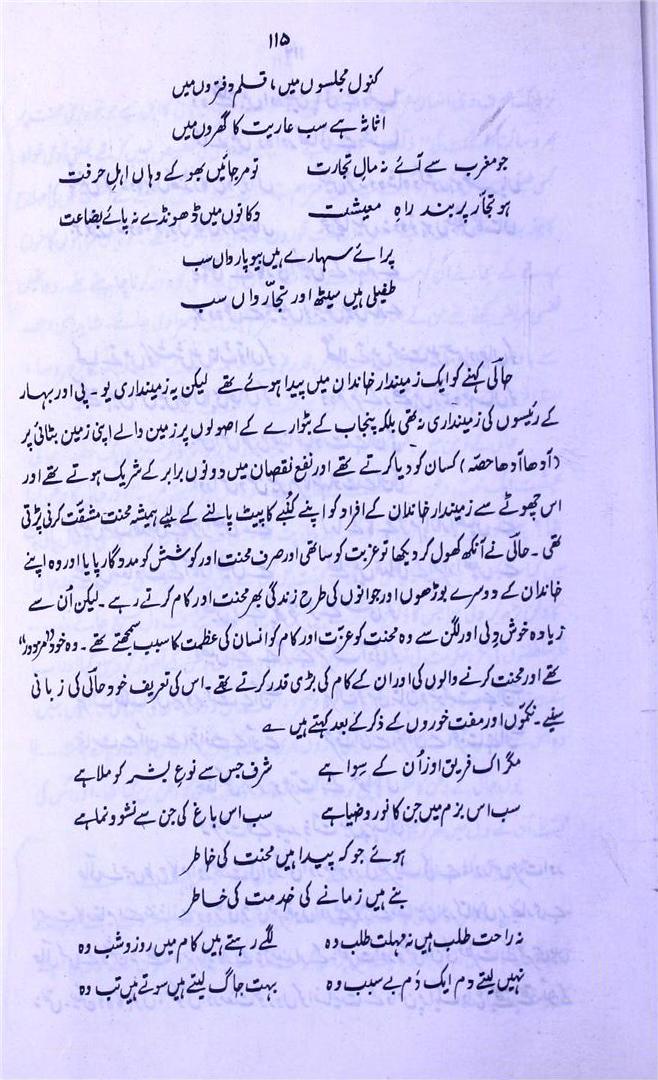 ۱۱۵
کنول مجلسوں میں، قلم دفتروں میں
اثاثہ ہے سب عاریت کا گھروں میں
جو مغرب سے آئے نہ مال تجارت تو مرجائیں بھوکے وہاں اہلِ حرفت
ہو تجار پر بند راہِ معیشت دکانوں میں ڈھونڈے نہ پائے بضاعت
پرائے سہارے ہیں بیوپار واں سب
طفیلی ہیں سیٹھ اور تجّار واں سب
حالیؔ کہنے کو ایک زمیندار خاندان میں پیدا ہوئے تھے لیکن یہ زمینداری یو۔ پی اور بہار
کے رئیسوں کی زمینداری نہ تھی بلکہ پنجاب کے بٹوارے کے اصولوں پر زمین والے اپنی زمین بٹائی پر
(آدھا آدھا حصّہ) کسان کو دیا کرتے تھے اور نفع نقصان میں دونوں برابر کے شریک ہوتے تھے اور
اس چھوٹے سے زمیندار خاندان کے افراد کو اپنے کُنبے کا پیٹ پالنے کے لیے ہمیشہ محنت مشقّت کرنی پڑتی
تھی۔ حالیؔ نے آنکھ کھول کر دیکھا تو غربت کو ساتھی اور صرف محنت اور کوشش کو مددگار پایا اور وہ اپنے
خاندان کے دوسرے بوڑھوں اور جوانوں کی طرح زندگی بھر محنت اور کام کرتے رہے۔ لیکن اُن سے
زیادہ خوش دِلی اور لگن سے وہ محنت کو عزّت اور کام کو انسان کی عظمت کا سبب سمجھتے تھے۔ وہ خود "مزدور"
تھے اور محنت کرنے والوں کی اور ان کے کام کی بڑی قدر کرتے تھے۔ اس کی تعریف خود حالیؔ کی زبانی
سنیے۔ نکمّوں اور مفت خوروں کے ذکر کے بعد کہتے ہیں ؎
مگر اک فریق اور ان کے سِوا ہے شرف جس سے نوعِ بشر کو ملا ہے
سب اس بزم میں جن کا نور و ضیا ہے سب اس باغ کی جن سے نشو و نما ہے
ہوئے جو کہ پیدا ہیں محنت کی خاطر
بنے ہیں زمانے کی خدمت کی خاطر
نہ راحت طلب ہیں نہ مہلت طلب وہ لگے رہتے ہیں کام میں روز و شب وہ
نہیں لیتے دم ایک دَم بے سبب وہ بہت جاگ لیتے ہیں سوتے ہیں تب وہ